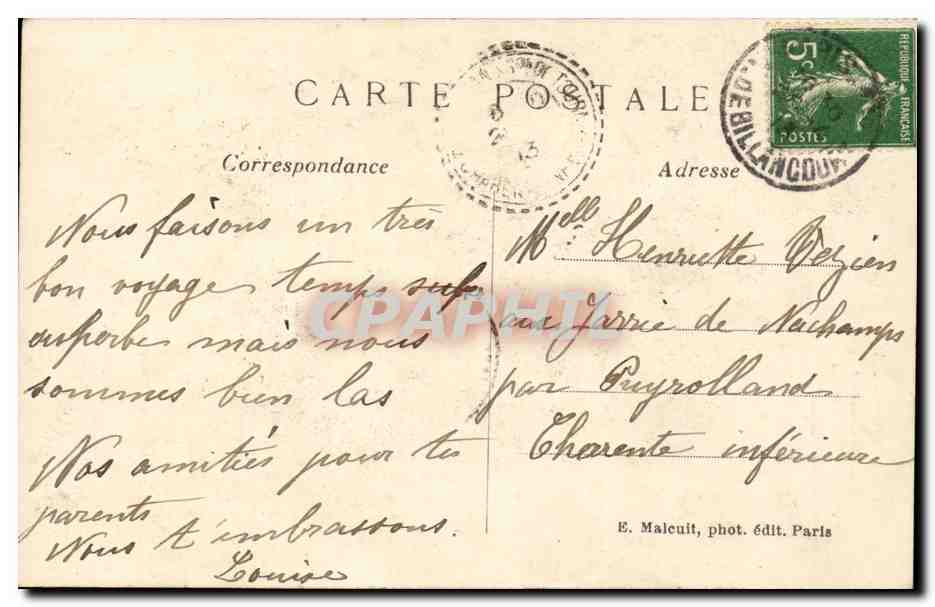 CARTE POSTALE
5c
REPUBLIQUE FRANÇAISE
POSTES
Correspondance
Adresse
Nous faisons un très
bon voyage temps
superbe mais nous
sommes bien las
Nos amitiés pour tes
parents
Nous t'embrassons.
Louise
Melle Henriette Vezien
aux Jarrie de Nachamps
par Puyrolland
Charente inférieure
E. Malcuit, phot. édit. Paris
CPAPHIL